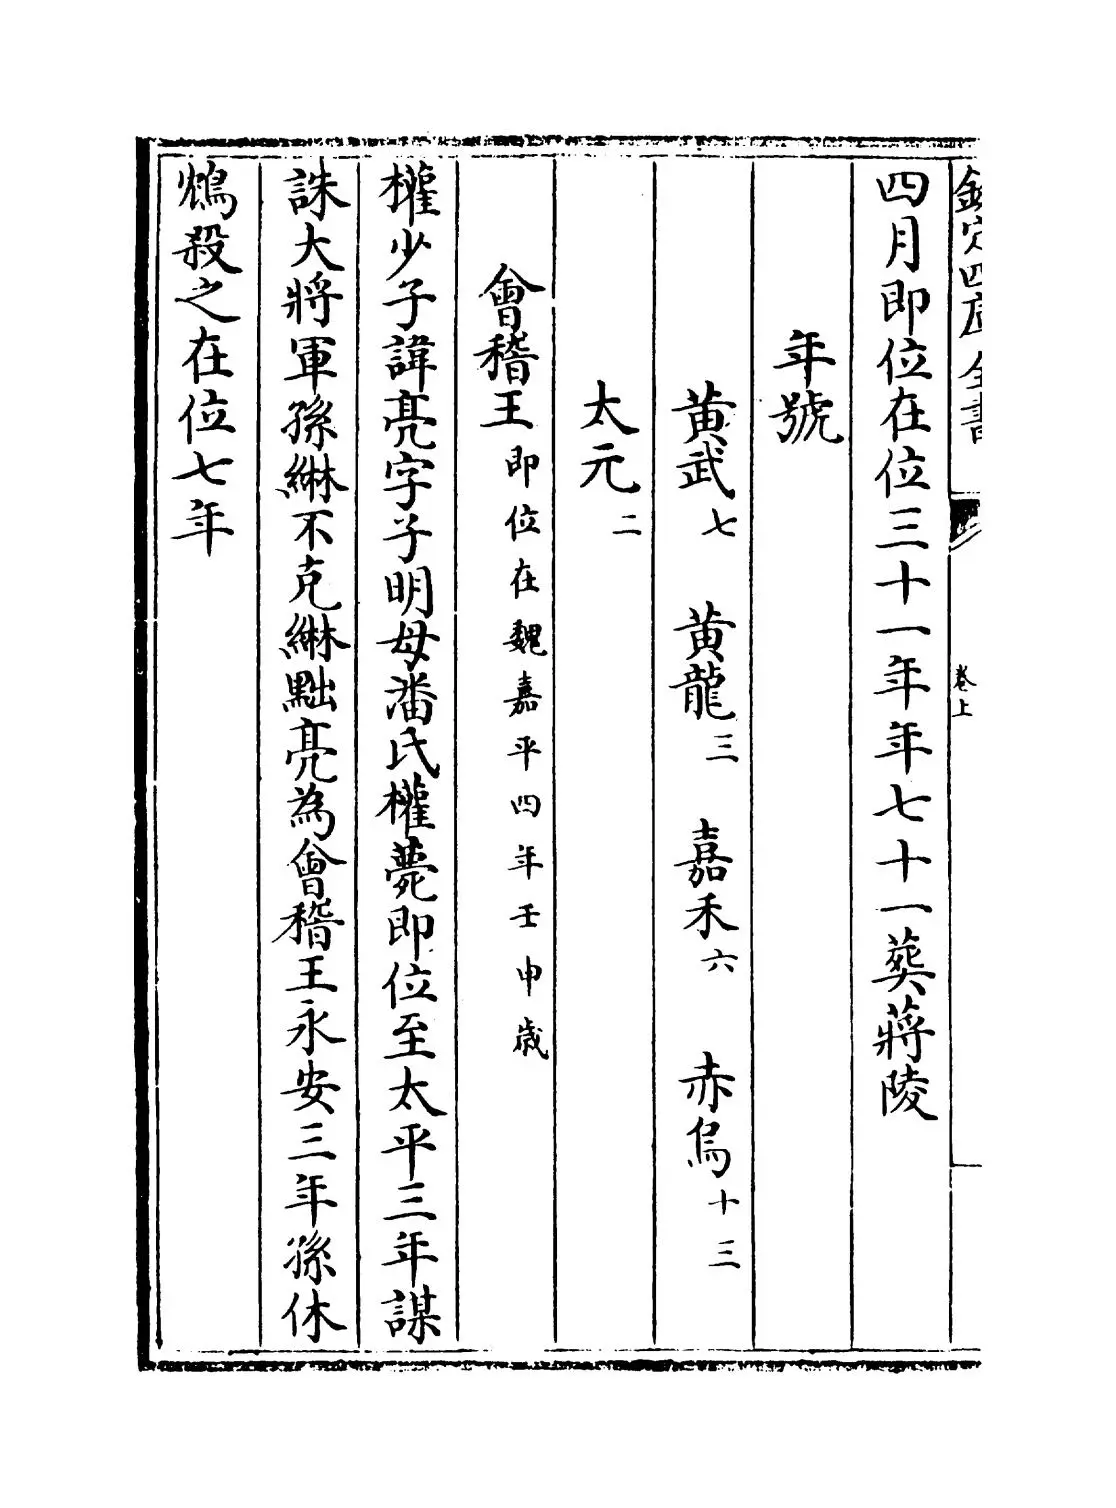 欽定四庫全書
卷上
四月即位在位三十一年年七十一葬蔣陵
年號
黃武七 黃龍三 嘉禾六 赤烏十三
太元二
會稽王即位在魏嘉平四年壬申歲
權少子諱亮字子明母潘氏權薨即位至太平三年謀
誅大將軍孫綝不克綝黜亮為會稽王永安三年孫休
鴆殺之在位七年